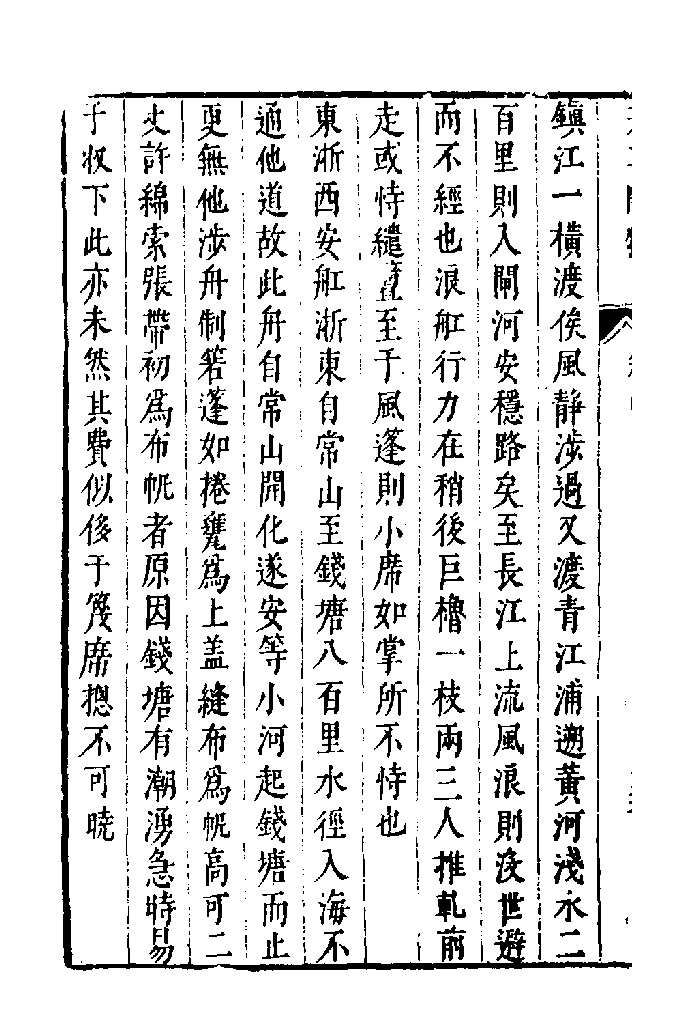 鎮江一橫渡俟風靜涉過又渡青江浦遡黃河淺水二
百里則入閘河安穩路矣至長江上流風浪則沒世避
而不經也浪舡行力在稍後巨櫓一枝兩三人推軋前
走或恃纜䉡至于風蓬則小席如掌所不恃也
東浙西安舡浙東自常山至錢塘八百里水徑入海不
通他道故此舟自常山開化遂安等小河起錢塘而止
更無他涉舟制箬蓬如捲甕爲上蓋縫布爲帆高可二
丈許綿索張帶初爲布帆者原因錢塘有潮湧急時易
于收下此亦未然其費似侈于篾席揔不可曉